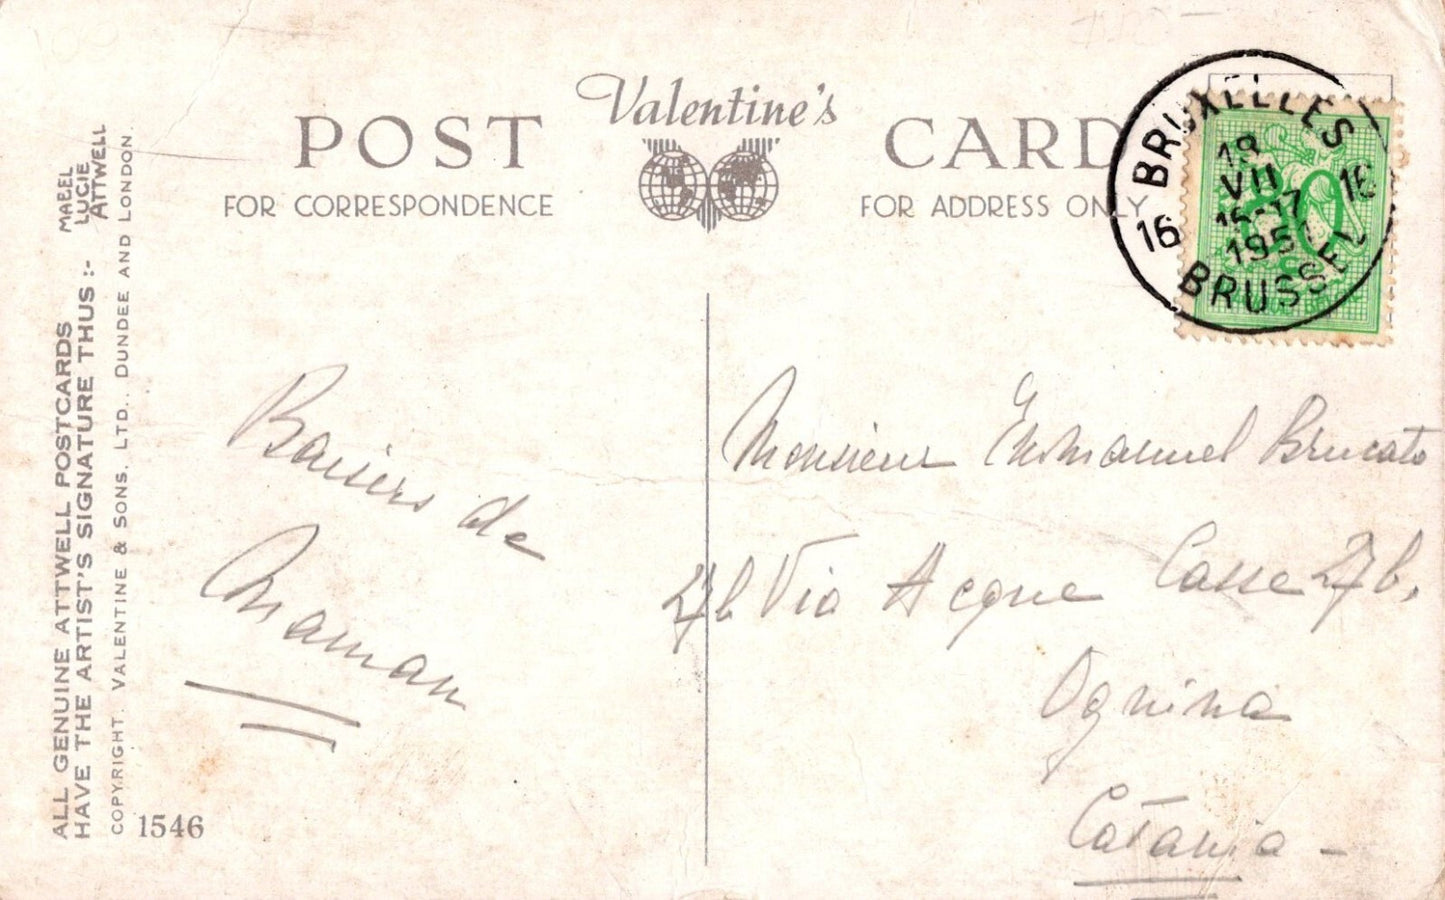 Valentine's
POST CARD
FOR CORRESPONDENCE
FOR ADDRESS ONLY
BRUXELLES
18
VII
16-17
1951
16 16
BRUSSEL
Baisers de
Maman
Monsieur Emmanuel Brucato
27b Via Acque Casse 27b,
Ognina
Catania -
ALL GENUINE ATTWELL POSTCARDS
HAVE THE ARTIST'S SIGNATURE THUS :-
MABEL
LUCIE
ATTWELL
COPYRIGHT. VALENTINE & SONS, LTD., DUNDEE AND LONDON.
1546